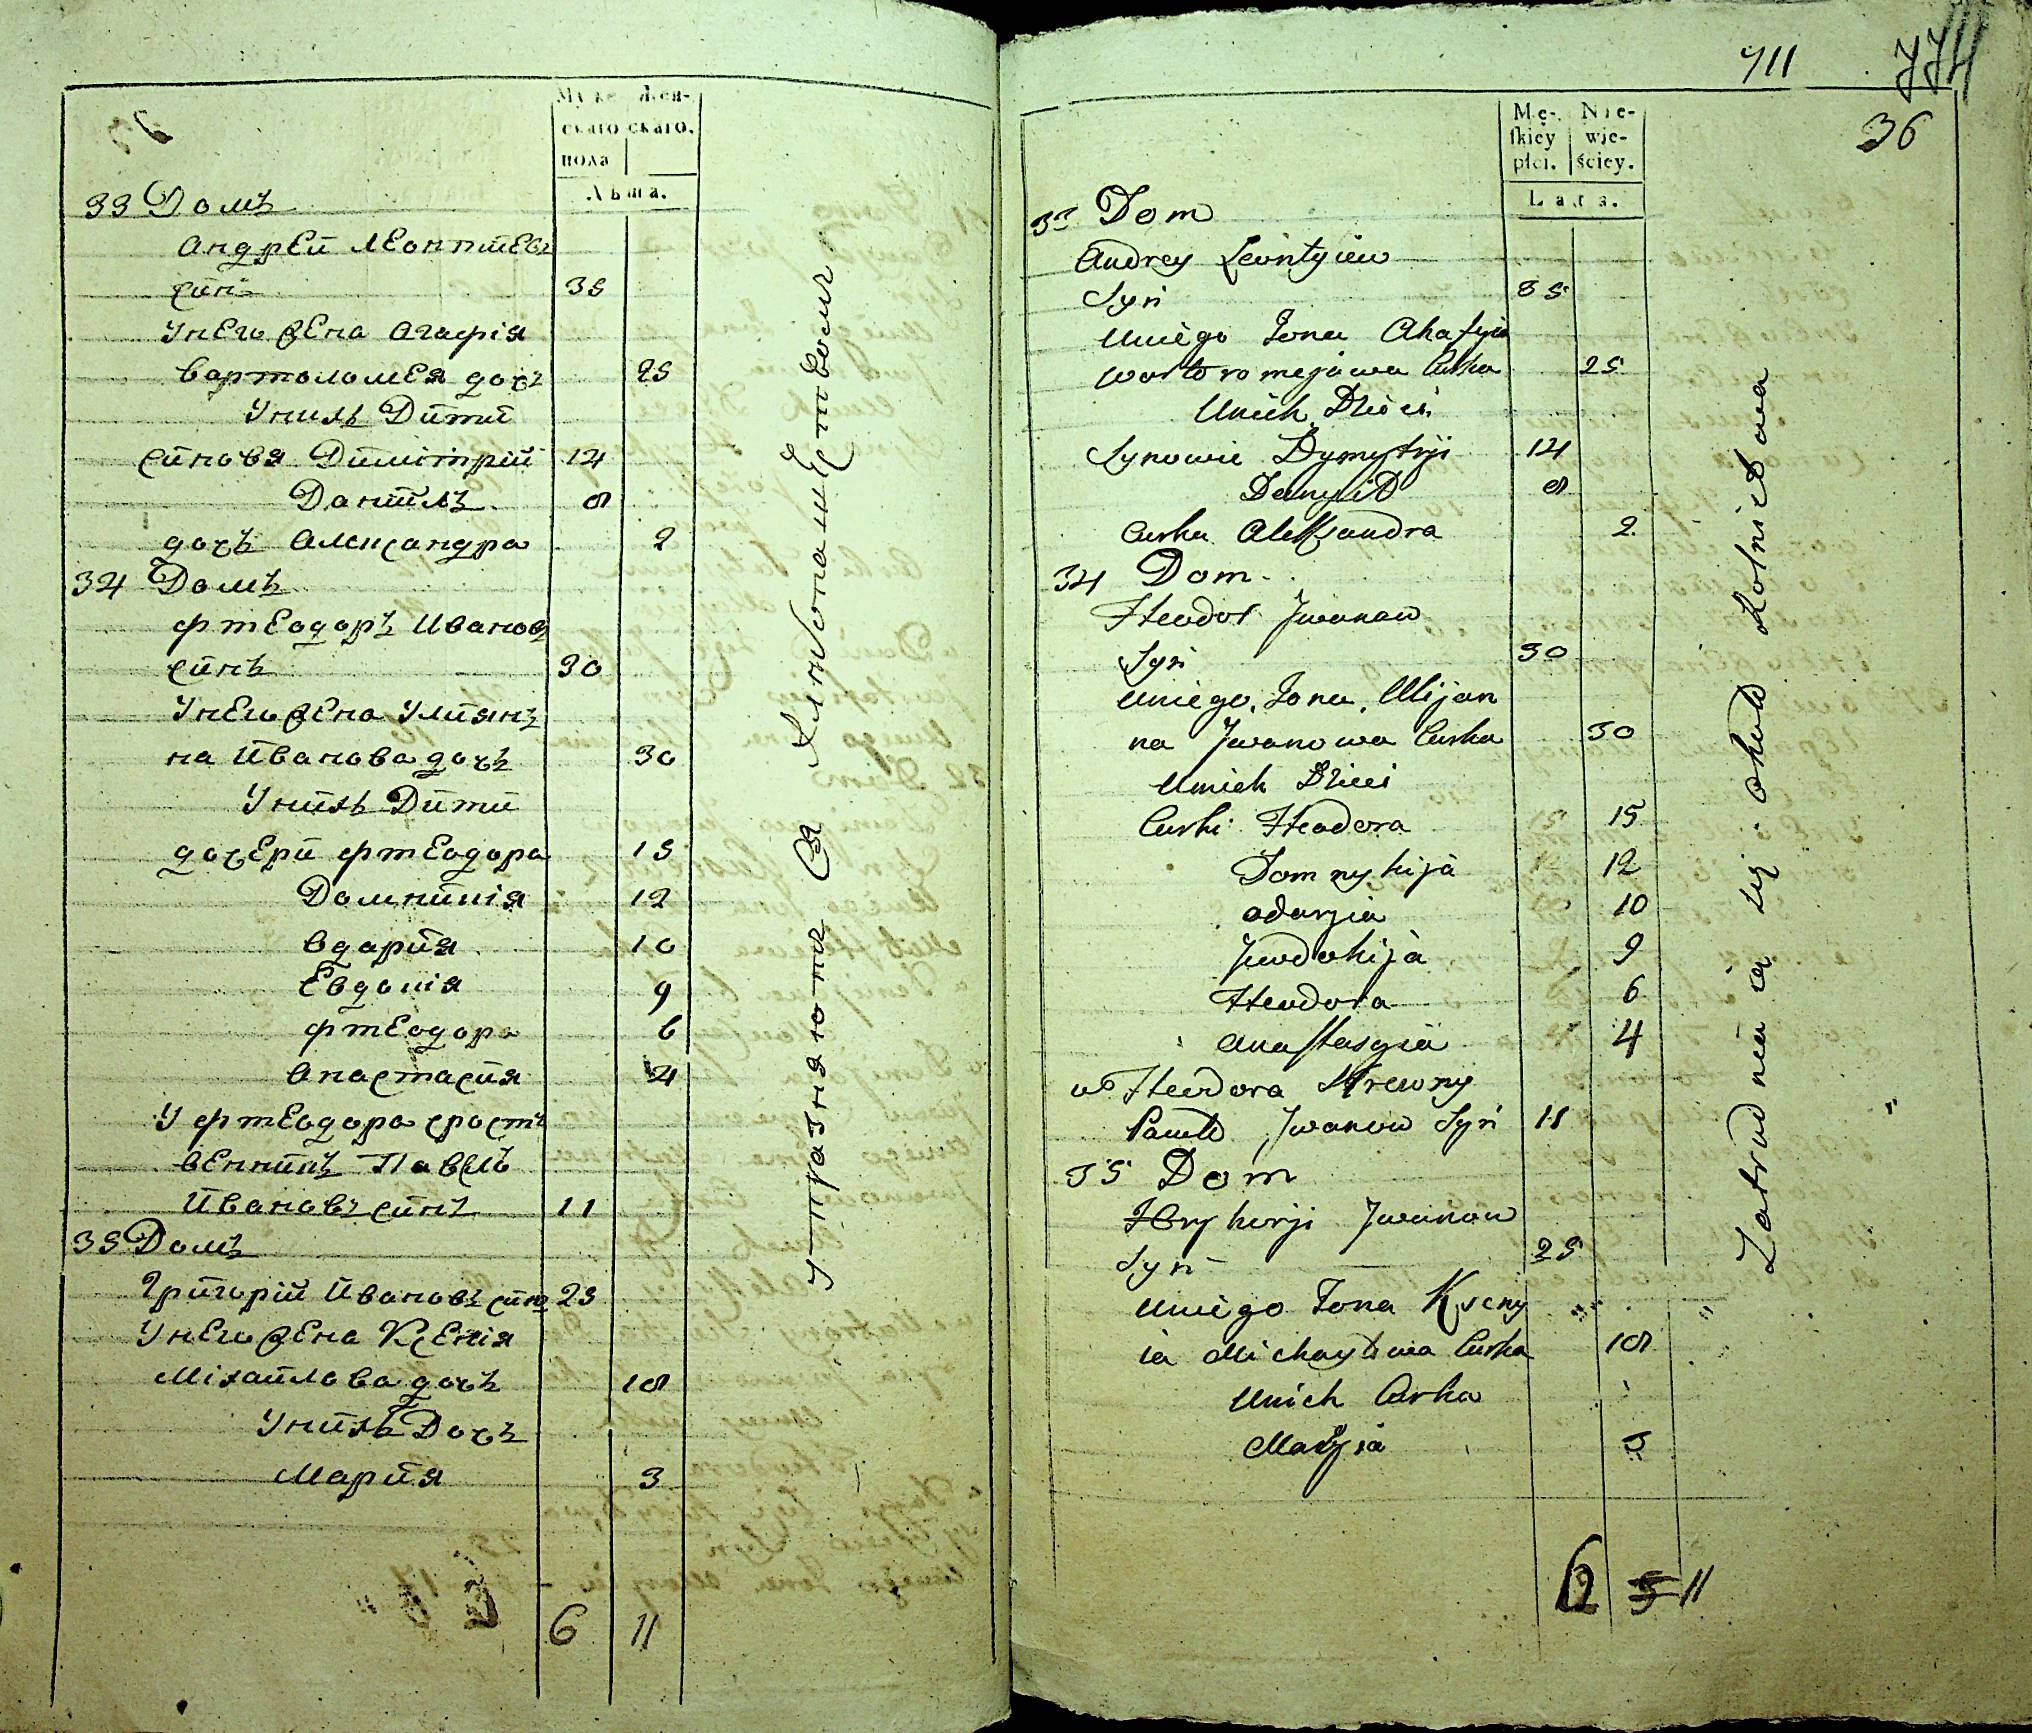 Муже- Жен-
скаго скаго.
пола
Лѣта.
33 Домъ
Андрей Леонтиевъ
синъ 35
У него жена Агафія
Вартоломея дочъ 25
У нихъ Дити
синовя Димітрій 14
Данiилъ 8
дочъ Александра 2
34 Домъ
Фтеодоръ Ивановъ
синъ 30
У него жена Улиян
на Иванова дочъ 30
У нихъ Дити
дочери Фтеодора 15
Домникія 12
Вдария 10
Евдокія 9
Фтеодора 6
Анастасия 4
У Фтеодора сродст
венникъ Павелъ
Ивановъ синъ 11
35 Домъ
Григорій Ивановъ синъ 25
У него жена Ксенія
Міхаилова дочъ 18
У нихъ Дочъ
Мария 3
6 11
упражняются хлебопашествомъ
711
774
36
Mę- Nie-
ſkiey wie-
płci. ściey.
Lata.
33 Dom
Andrey Leontyiew
Syn 35
Uniego Żona Ahafyia
Wortoromejowa Curka 25
Unich Dzieci
Synowie Dymytryi 14
Danyił 8
Curka Alekſandra 2
34 Dom
Hteodor Jwanow
Syn 30
Uniego Żona Ulijan
na Jwanowa Curka 30
Unich Dzieci
Curki Hteodora 15
Domnykija 12
Odaryia 10
Jewdokija 9
Hteodora 6
Anaſtasyia 4
u Hteodora Krewny
Paweł Jwanow Syn 11
35 Dom
Hryhorji Jwanow
Syn 25
Uniego Żona Kseny
ia Michayłowa Curka 18
Unich Curka
Maryia 3
6 11
Zatrudniaią się około Rolnictwa